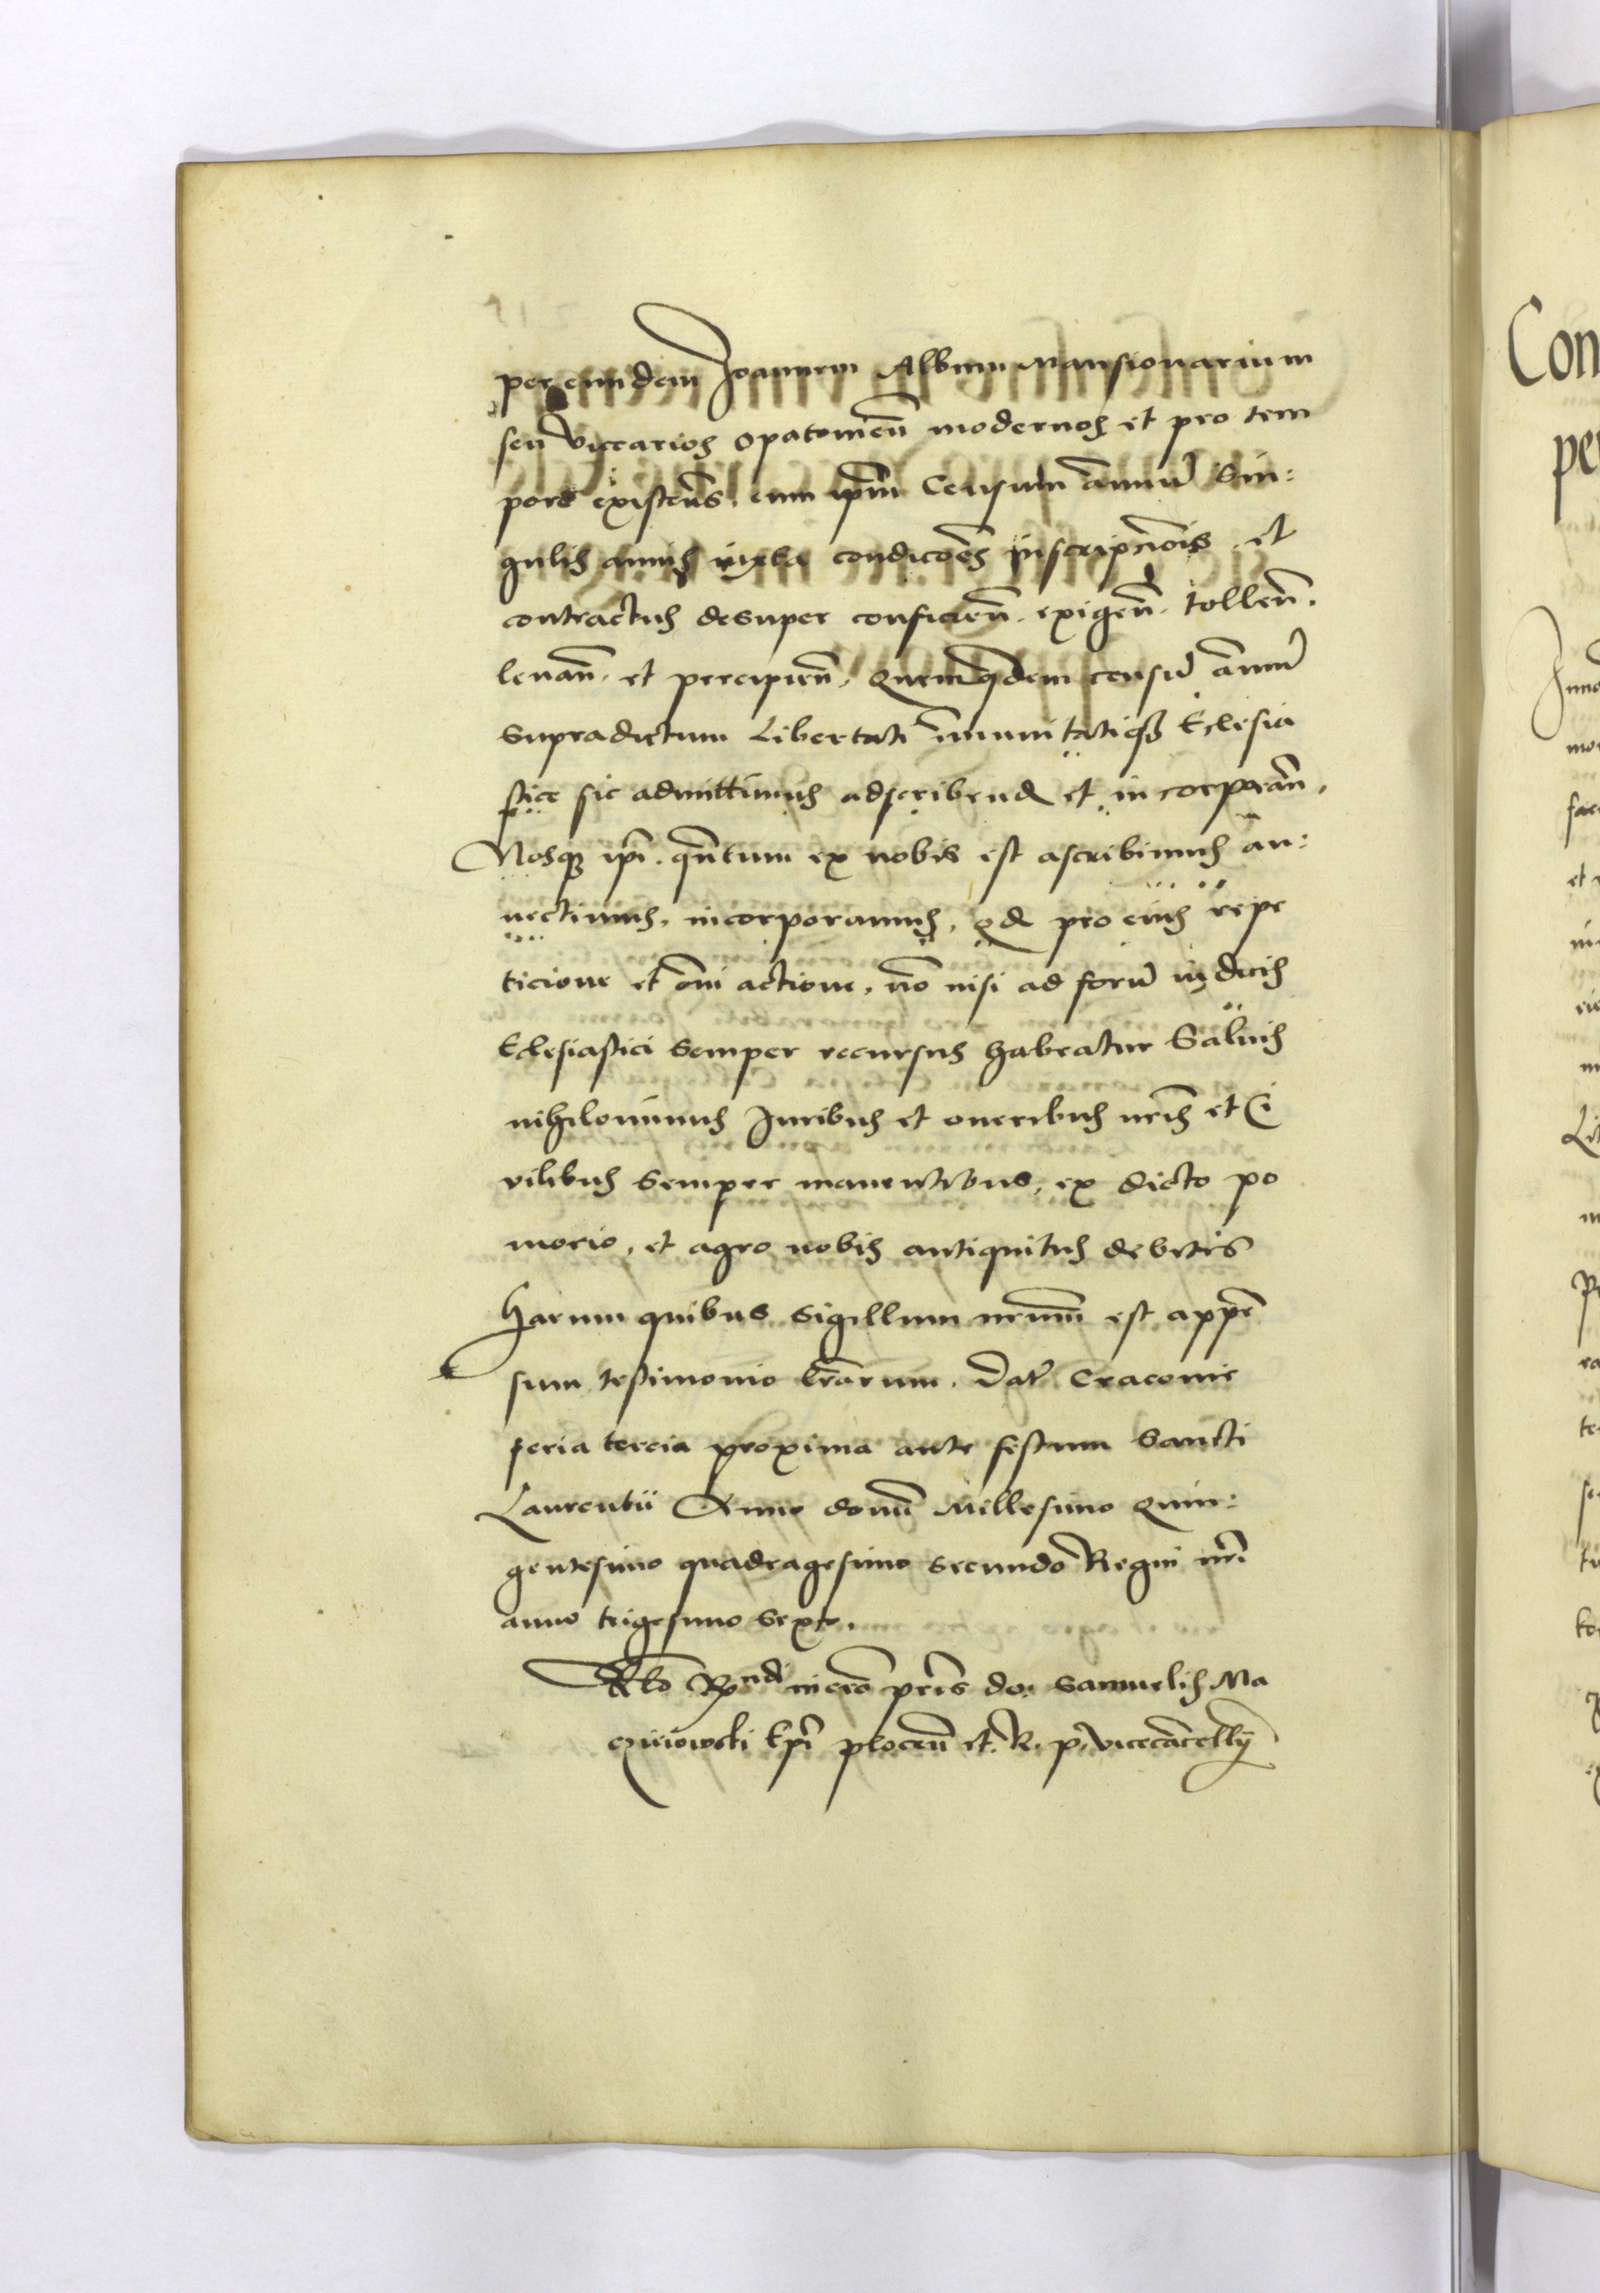 per eundem Joannem Album Mansionarium
seu viccarios Opatouień modernos et pro tem
pore existeñs. cum ipm̃ Censum annuũ Sin:
gulis annis iuxta condicões inscripciõis et
contractus desuper conficień. exigeñ. tolleñ.
leuañ. et percipień. Quemquidem censũ annuũ
supradictum Libertati immunitatiq3 Eclesia
stice sic admittimus adscribend et incorporañ,
Nosq3 ipĩ. quñtum ex nobis est ascribimus an:
nectimus, incorporamus, qd pro eius repe
ticione et oĩm actione, nõ nisi ad forũ iudicis
Eclesiastici semper recursus habeatur Saluis
nihilominus Juribus et oneribus nrĩs et Ci
vilibus semper manentibus, ex dicto po
morio, et agro nobis antiquitus debitis
Harum quibus sigillum nrum̃ est appẽ
sum testimonio lrãrum. Dat̃ Cracouie
feria tercia proxima ante festum Sancti
Laurentii Anno domĩ Millesimo Quin:
gentesimo quadragesimo Secundo Regni nrĩ
anno trigesimo sexto.
Rlõ Rndi in crõ prĩs do: Samuelis Ma
czieiowski Epĩ ploceñ et. R. p. vicecãcellij